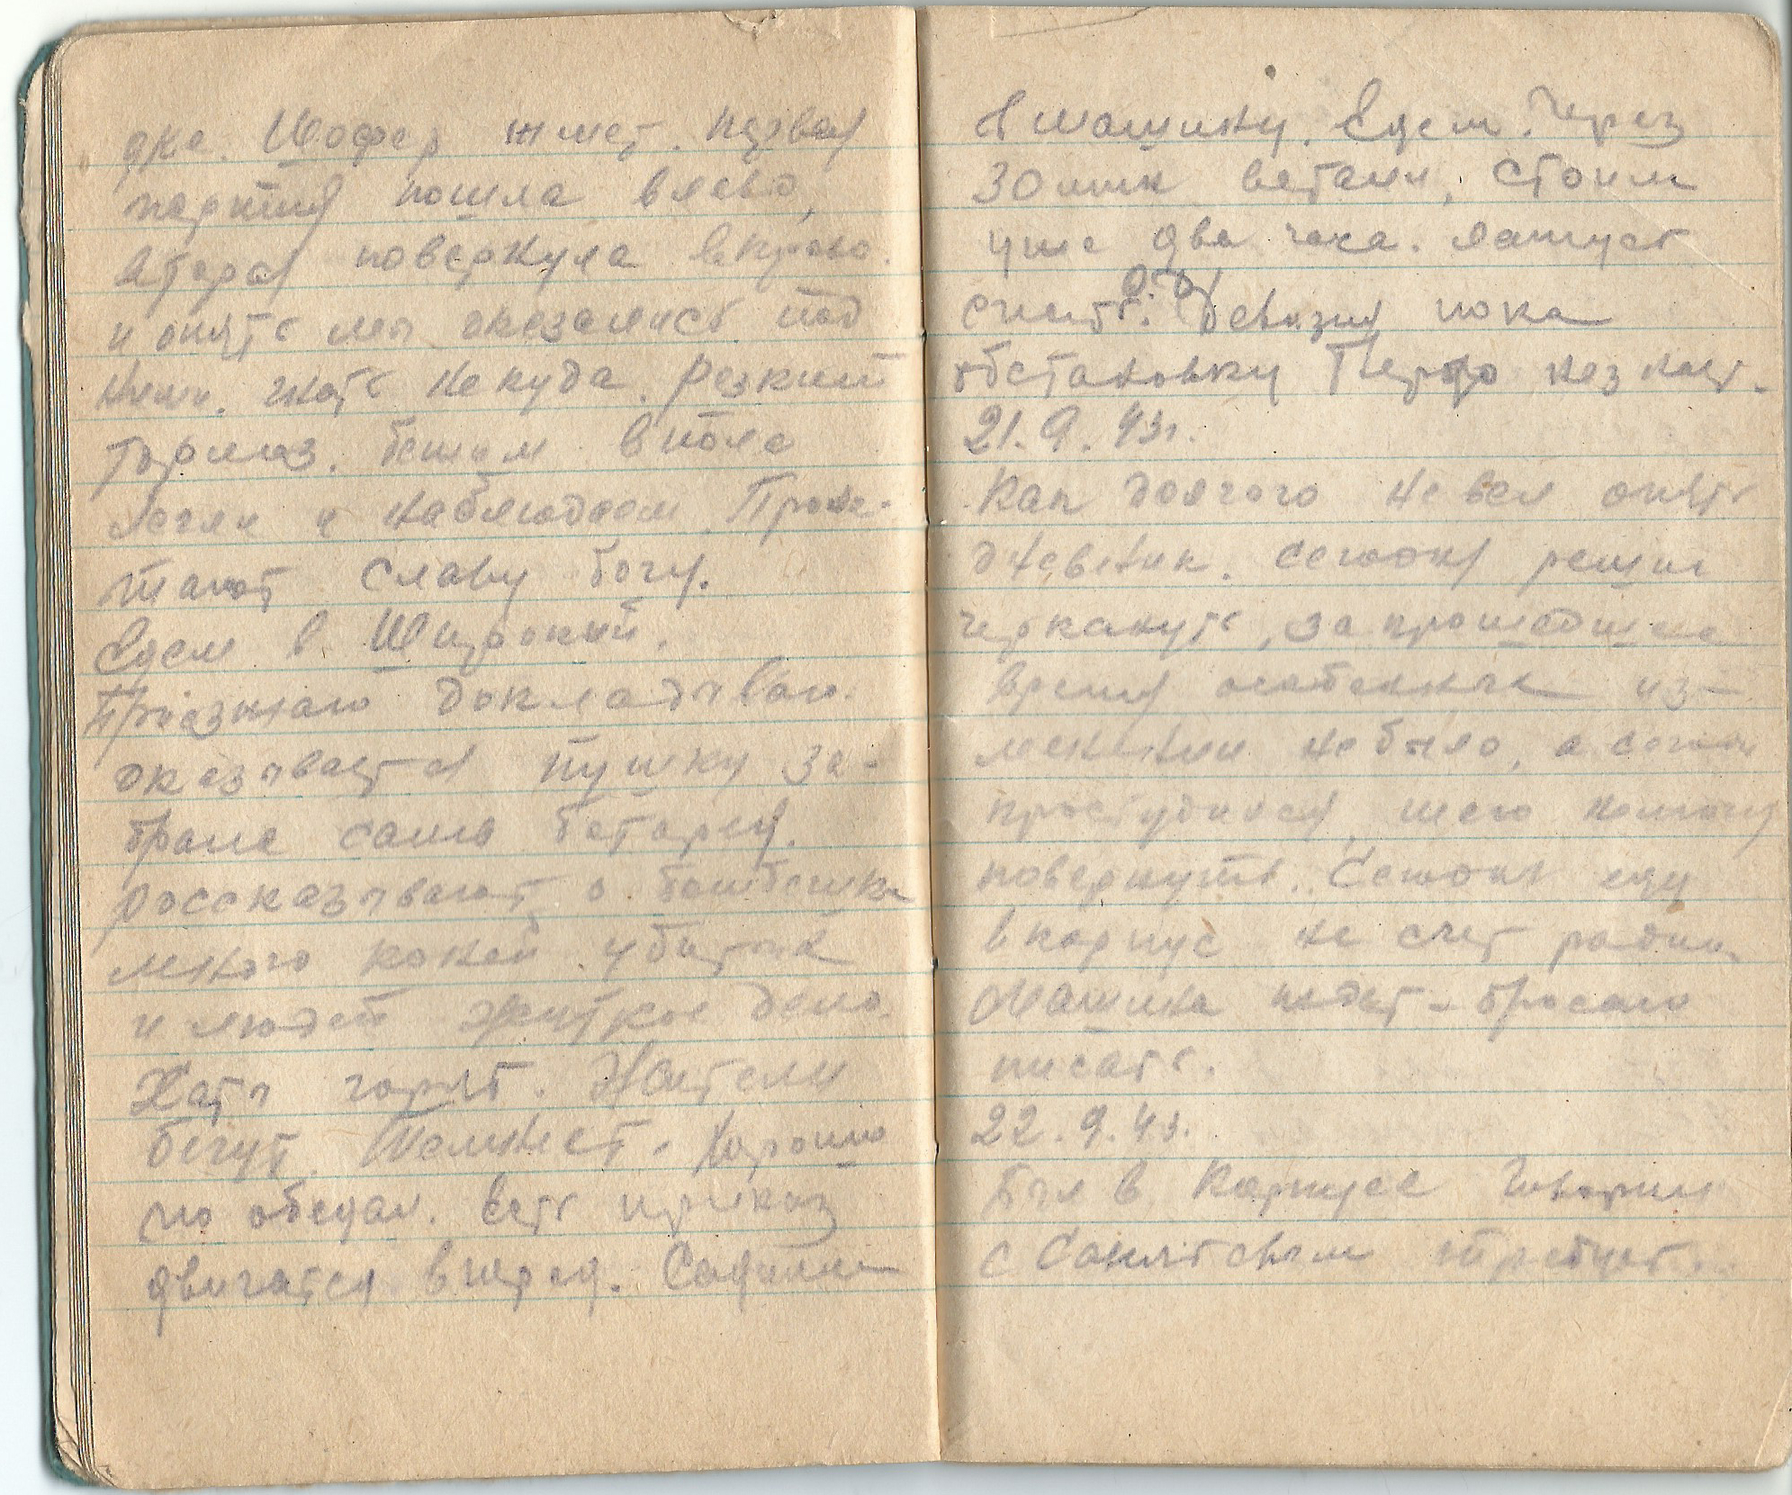 дке. Шофер жмет. Первая
партия пошла влево,
вторая повернула вправо.
и опять мы оказались под
ними. гнать некуда. Резкий
тормоз. бежим в поле
легли и наблюдаем. Проле-
тают славу богу.
Едем в Широкий.
Приезжаю докладываю.
оказывается пушку за-
брала сама батарея.
рассказывают о бомбежке
много коней убитых
и людей жуткое дело.
Хаты горят. Жители
бегут. Темнеет. Хорошо
по обедал. Есть приказ
двигатся вперед. Садимся
в машину. Едем. Через
30 мин встали, стоим
уже два часа.
спать. девизия пока
обстановку незнает.
21.9.43г.
Как долгого не вел опять
дневник. Сегодня решил
черкануть, за прошедшее
время особенных из-
менений не было, а сегодня
простудился, шею немогу
повернуть. Сегодня еду
в корпус не счет рации
Машина ждет - бросаю
писать.
22.9.43.
Был в Корпусе Говорил
с